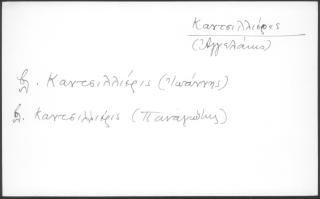 Καντσιλλιέρης
(Ἀγγελάκης)
βλ. Καντσιλλιέρις (Ἰωάννης)
βλ. Καντσιλλιέρις (Παναγιώτης)